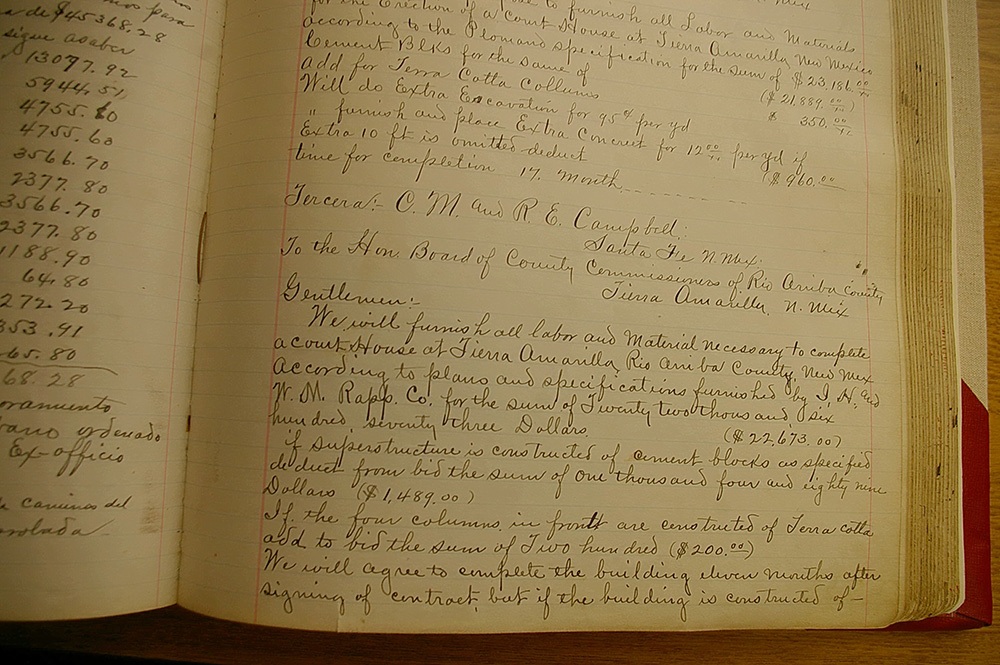 de $45368.28
sigue asaber
13097.92
5944.51
4755.60
4755.60
3566.70
2377.80
3566.70
2377.80
1188.90
64.80
272.20
353.91
65.80
68.28
ordenado
Ex-officio
caminos del
to furnish all Labor and Materials
for the Erection of a Court House at Tierra Amarilla, New Mexico
according to the Plans and specification for the sum of $23,186.00
Cement Blks for the same of ($21,889.00)
add for Terra Cotta Collums $350.00
Will do Extra Excavation for 95¢ per yd
" furnish and place Extra Concreet for 12.00 per yd if
Extra 10 ft is omitted deduct ($960.00
time for completion 17. Month
Tercera:- C. M. and R. E. Campbell:
Santa Fe N. Mex.
To the Hon. Board of County Commissioners of Rio Arriba County
Tierra Amarilla, N. Mex
Gentlemen:-
We will furnish all labor and Material necessary to complete
a court House at Tierra Amarilla, Rio Arriba County, New Mex
According to plans and specifications furnished by I. H. and
W. M. Rapp. Co. for the sum of Twenty two thousand six
hundred, seventy three Dollars. ($22,673.00)
if superstructure is constructed of cement blocks as specified
deduct from bid the sum of One thousand four and eighty nine
Dollars ($1,489.00)
If the four columns in frontt are constructed of Terra cotta
add to bid the sum of Two hundred ($200.00)
We will agree to complete the building eleven months after
signing of contract, but if the building is constructed of-